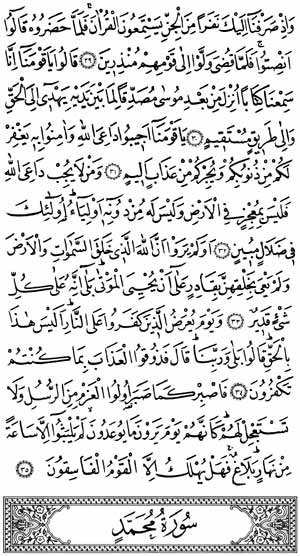 وَاِذْ صَرَفْنَٓا اِلَيْكَ نَفَرًا مِنَ الْجِنِّ يَسْتَمِعُونَ الْقُرْاٰنَۚ فَلَمَّا حَضَرُوهُ قَالُٓوا
اَنْصِتُواۚ فَلَمَّا قُضِيَ وَلَّوْا اِلٰى قَوْمِهِمْ مُنْذِر۪ينَ ﴿٢٩﴾ قَالُوا يَا قَوْمَنَٓا اِنَّا
سَمِعْنَا كِتَابًا اُنْزِلَ مِنْ بَعْدِ مُوسٰى مُصَدِّقًا لِمَا بَيْنَ يَدَيْهِ يَهْد۪ٓي اِلَى الْحَقِّ
وَاِلٰى طَر۪يقٍ مُسْتَق۪يمٍ ﴿٣٠﴾ يَا قَوْمَنَٓا اَج۪يبُوا دَاعِيَ اللّٰهِ وَاٰمِنُوا بِه۪ يَغْفِرْ
لَكُمْ مِنْ ذُنُوبِكُمْ وَيُجِرْكُمْ مِنْ عَذَابٍ اَل۪يمٍ ﴿٣١﴾ وَمَنْ لَا يُجِبْ دَاعِيَ اللّٰهِ
فَلَيْسَ بِمُعْجِزٍ فِي الْاَرْضِ وَلَيْسَ لَهُ مِنْ دُونِه۪ٓ اَوْلِيَٓاءُۜ اُو۬لٰٓئِكَ
ف۪ي ضَلَالٍ مُب۪ينٍ ﴿٣٢﴾ اَوَلَمْ يَرَوْا اَنَّ اللّٰهَ الَّذ۪ي خَلَقَ السَّمٰوَاتِ وَالْاَرْضَ
وَلَمْ يَعْيَ بِخَلْقِهِنَّ بِقَادِرٍ عَلٰٓى اَنْ يُحْيِيَ الْمَوْتٰىۜ بَلٰٓى اِنَّهُ عَلٰى كُلِّ
شَيْءٍ قَد۪يرٌ ﴿٣٣﴾ وَيَوْمَ يُعْرَضُ الَّذ۪ينَ كَفَرُوا عَلَى النَّارِۜ اَلَيْسَ هٰذَا
بِالْحَقِّۜ قَالُوا بَلٰى وَرَبِّنَاۜ قَالَ فَذُوقُوا الْعَذَابَ بِمَا كُنْتُمْ
تَكْفُرُونَ ﴿٣٤﴾ فَاصْبِرْ كَمَا صَبَرَ اُو۬لُوا الْعَزْمِ مِنَ الرُّسُلِ وَلَا
تَسْتَعْجِلْ لَهُمْۜ كَاَنَّهُمْ يَوْمَ يَرَوْنَ مَا يُوعَدُونَۙ لَمْ يَلْبَثُٓوا اِلَّا سَاعَةً
مِنْ نَهَارٍۜ بَلَاغٌۚ فَهَلْ يُهْلَكُ اِلَّا الْقَوْمُ الْفَاسِقُونَ ﴿٣٥﴾
سُورَةُ مُحَمَّدٍ